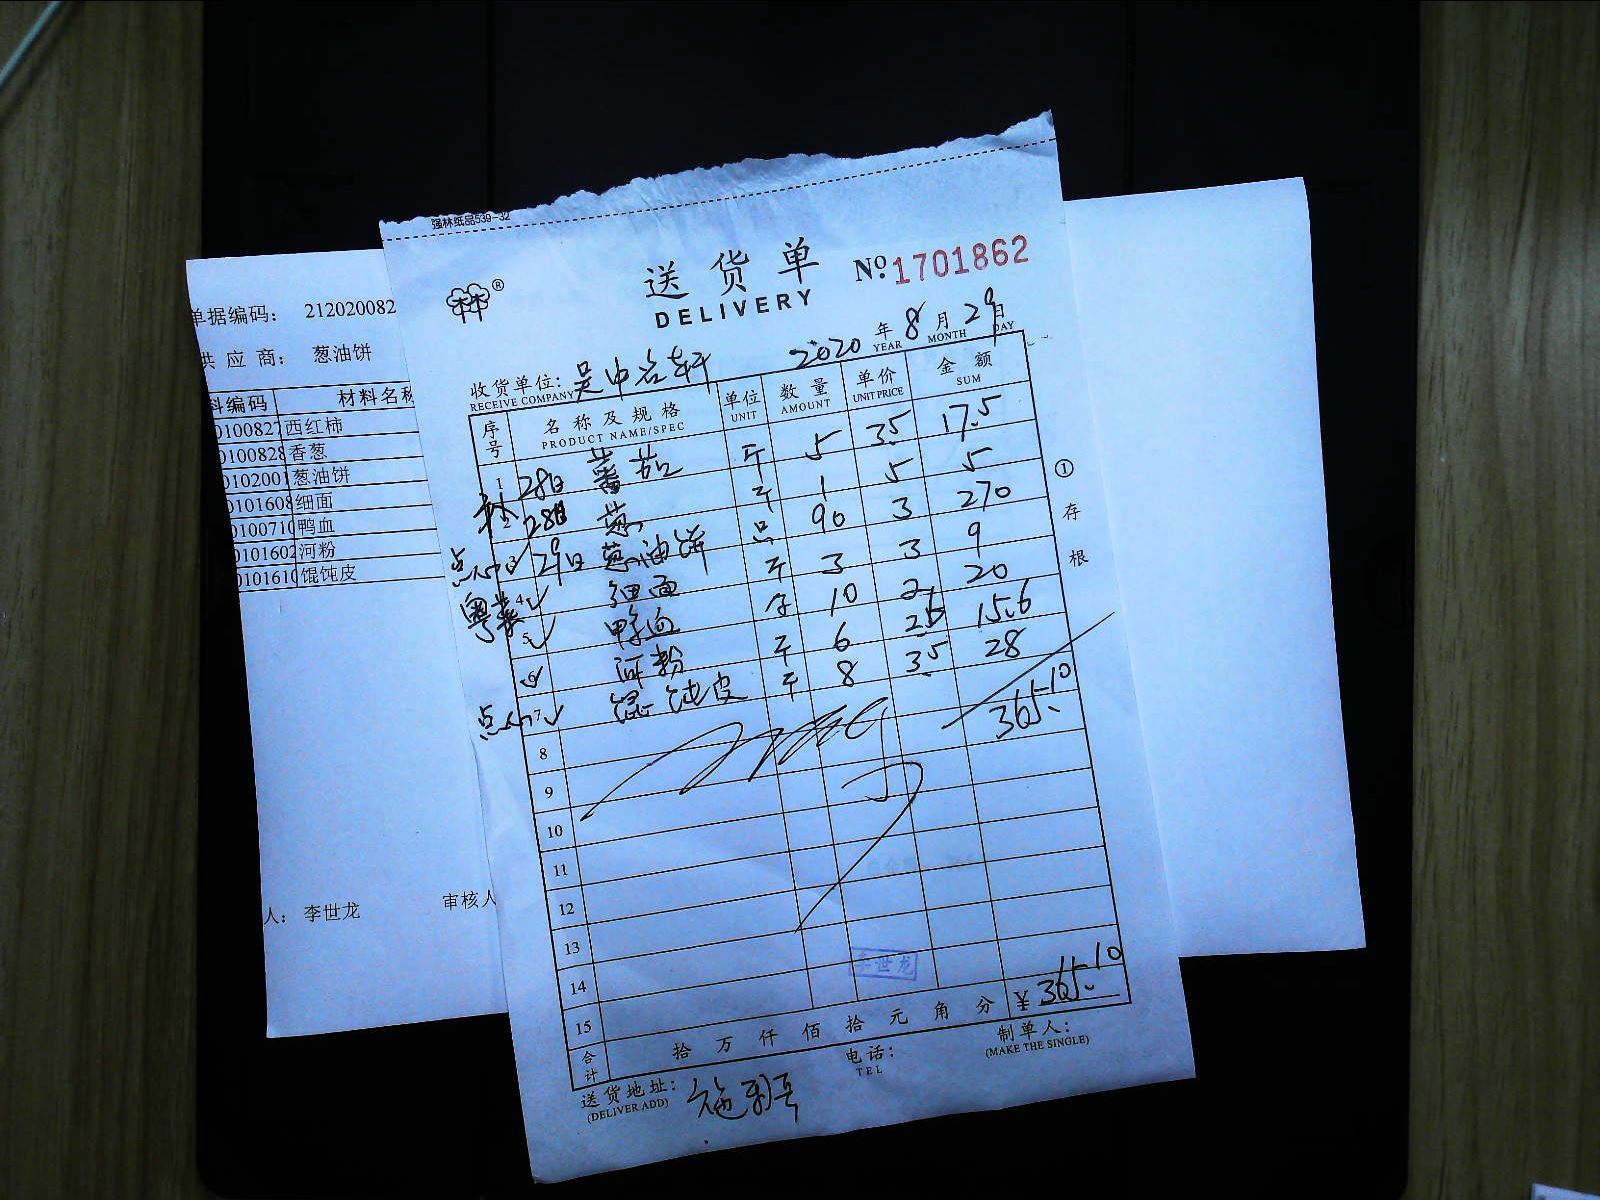 强林纸品539-32
送货单 №1701862
DELIVERY
2020 年 8 月 29 日
YEAR MONTH DAY
收货单位: 吴中
RECEIVE COMPANY
序号 名称及规格 单位 数量 单价 金额
PRODUCT NAME/SPEC UNIT AMOUNT UNIT PRICE SUM
1 28日 蕃茄 斤 5 3.5 17.5
2 28日 葱 斤 1 5 5
3 29日 葱油饼 只 90 3 270
4 细面 斤 3 3 9
5 鸭血 10 2 20
6 河粉 斤 6 2.6 15.6
7 馄饨皮 斤 8 3.5 28
点心
粤菜
点心
365.10
8
9
10
11
12
13
14
15
李世龙
合计 拾 万 仟 佰 拾 元 角 分 ¥365.10
送货地址: 电话: 制单人:
(DELIVER ADD) TEL (MAKE THE SINGLE)
① 存根
单据编码: 212020082
供应商: 葱油饼
料编码 材料名称
0100827 西红柿
0100828 香葱
0102001 葱油饼
0101608 细面
0100710 鸭血
0101602 河粉
0101610 馄饨皮
人: 李世龙 审核人